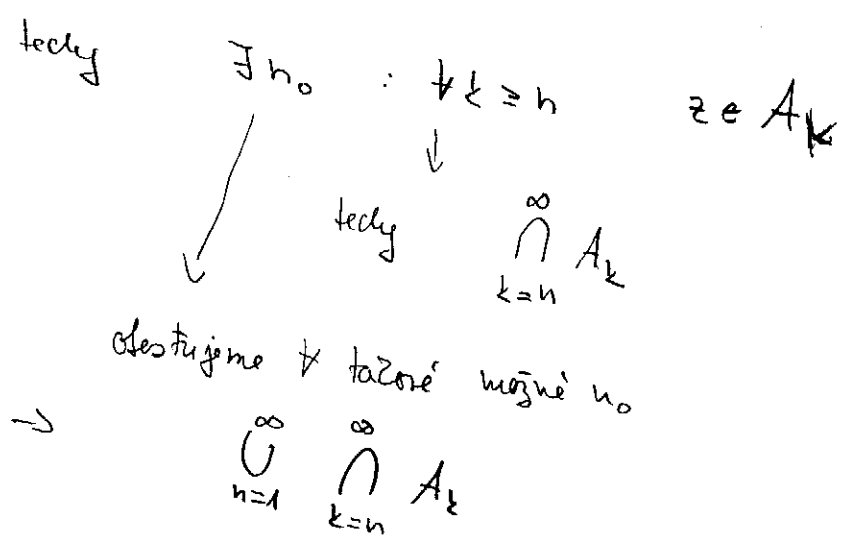 tedy ∃ n₀ : ∀ k ≥ n z ∈ A_k
tedy ⋂_{k=n}^{∞} A_k
ošestřujeme ∀ takové možné n₀
→ ⋃_{n=1}^{∞} ⋂_{k=n}^{∞} A_k